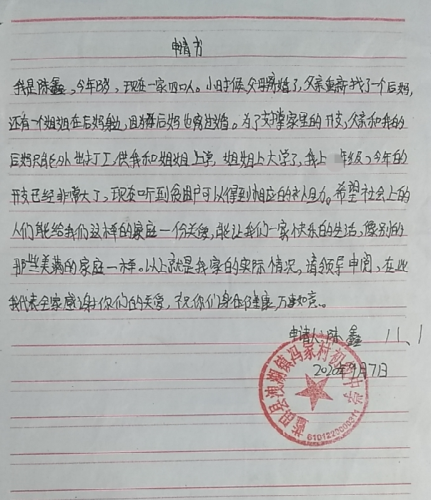 申请书
我是陈鑫,今年岁,现在一家四口人。小时候父母离婚了,父亲重新找了一个后妈,
还有一个姐姐在后妈身边,因为后妈也离过婚。为了支撑家里的开支,父亲和我的
后妈只能外出打工,供我和姐姐上学,姐姐上大学了,我上 年级,今年的
开支已经非常大了,现在听到贫困户可以得到相应的补助。希望社会上的
人们能给我们这样的家庭一份关爱,能让我们一家快乐的生活,像别的
那些美满的家庭一样。以上就是我家的实际情况,请领导申阅,在此
我代表全家感谢你们的关爱,祝你们身体健康,万事如意。
申请人:陈鑫 八、1
2020年9月7日
蓝田县洩湖镇冯家村初级中学